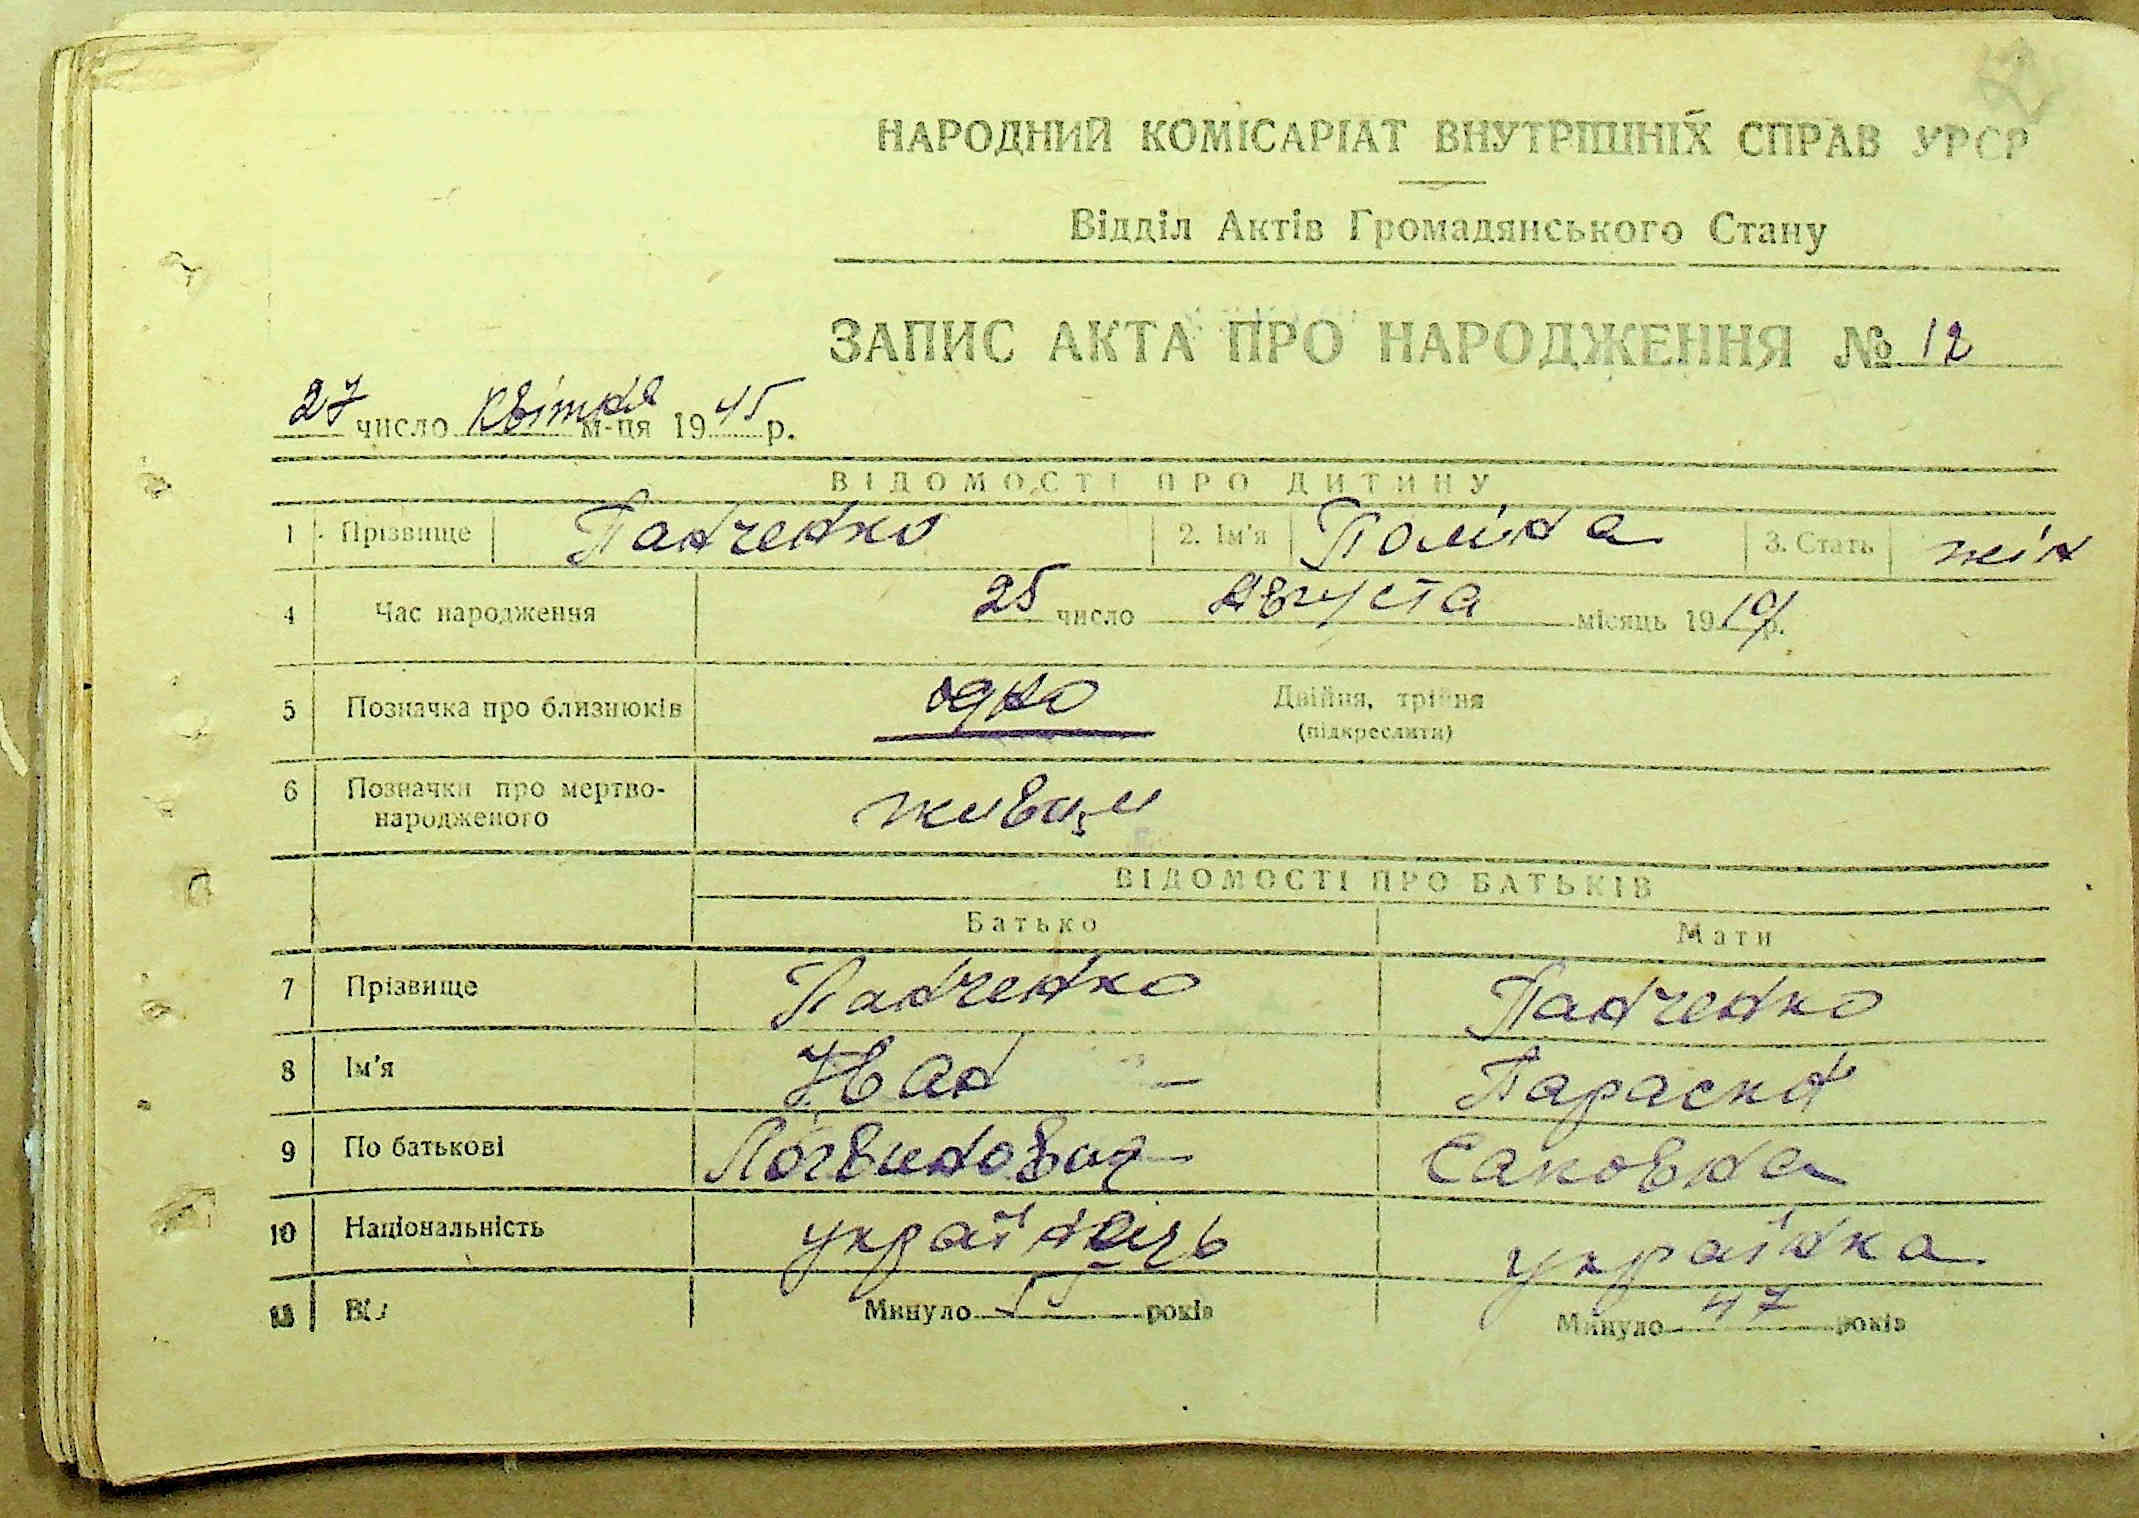 НАРОДНИЙ КОМІСАРІАТ ВНУТРІШНІХ СПРАВ УРСР
Відділ Актів Громадянського Стану
ЗАПИС АКТА ПРО НАРОДЖЕННЯ № 12
27 число квітня м-ця 1945 р.
ВІДОМОСТІ ПРО ДИТИНУ
1 Прізвище Панченко 2. Ім'я Поліна 3. Стать жін
4 Час народження 25 число Августа місяць 19 р.
5 Позначка про близнюків одно Двійня, трійня
(підкреслити)
6 Позначки про мертво-
народженого
ВІДОМОСТІ ПРО БАТЬКІВ
Батько Мати
7 Прізвище Панченко Панченко
8 Ім'я Иван Параска
9 По батькові Логвинович Саковна
10 Національність українець українка
11 Вік Минуло 55 років Минуло 47 років